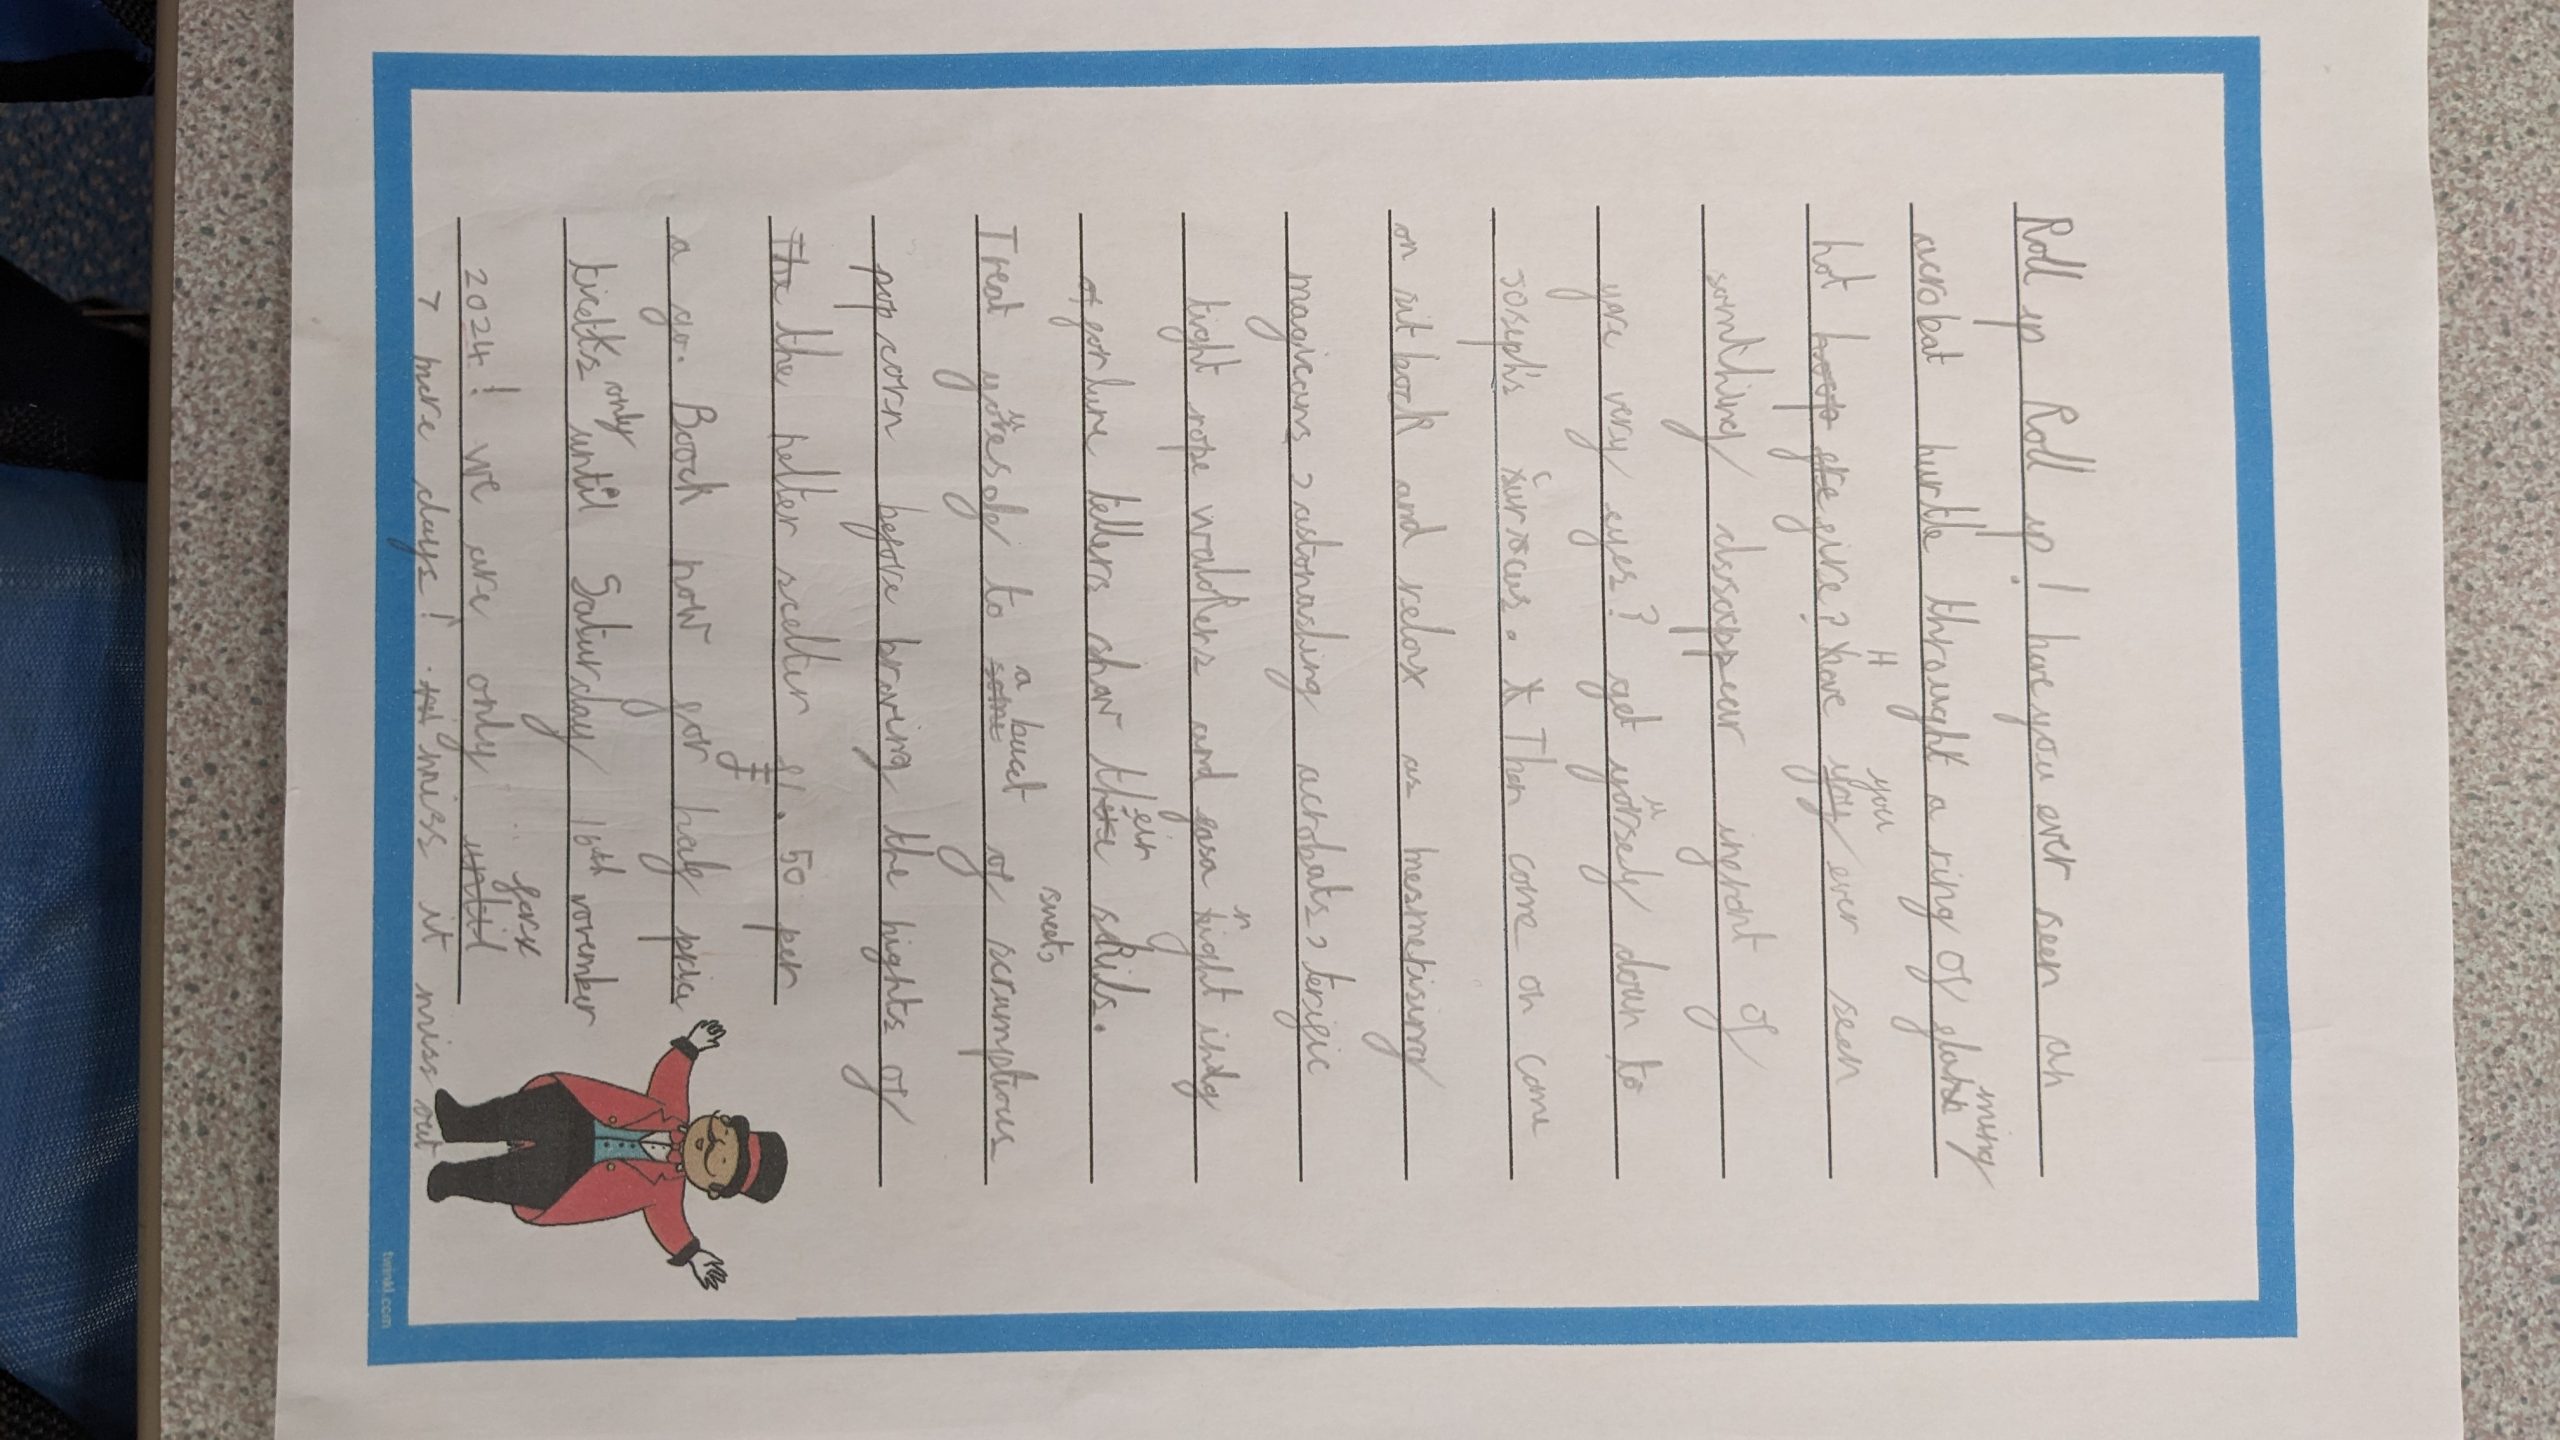 Roll up Roll up! have you ever seen an
acrobat hurtle throught a ring of flaming
hot fire? Have you ever seen
somthing disappear infront of
yore very eyes? get yourself down to
Joseph's circus. Then come on come
on sit back and relax as mesmerising
magicians, astonashing acrobats, terific
tight rope walkers and fasanight ing
forture tellers show their skills.
Treat youreself to a bucet of scrumptious sweets
pop corn before braving the hights of
the helter scelter £1.50 per
a go. Boock now for half price
tickts only until Saturday 16th november
2024! we are only for
7 more days! miss it miss out
twinkl.com